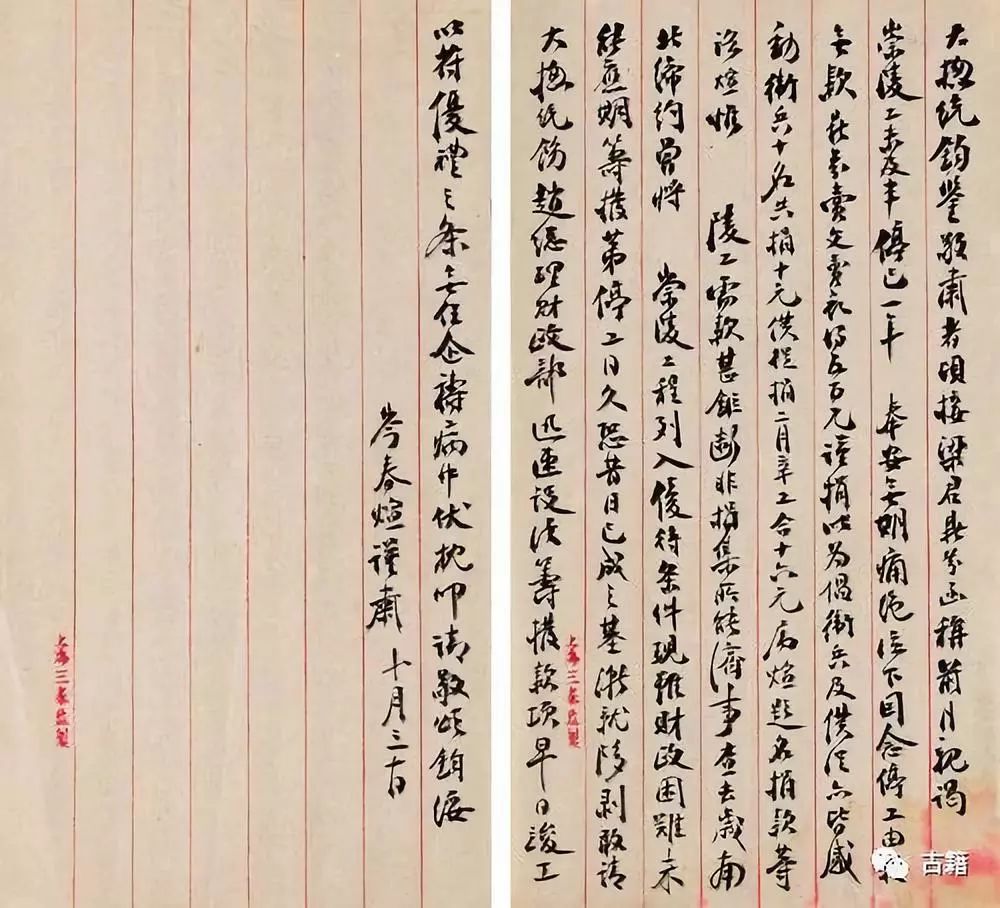 大總統鈞鑒敬肅者頃接梁君鼎芬函稱前月祇謁
崇陵工未及半停已一年 奉安無期痛絕泣下因念停工由於
無款在京賣文賣衣得五百元謹捐此為倡衛兵及供役亦皆感
動衛兵十名共捐十元供役捐二月辛工合十六元屬煊題名捐款等
語煊惟 陵工需款甚鉅斷非捐集所能濟事查去歲南
北締約曾將 崇陵工程列入優待條件現雖財政困難未
能應期籌撥第停工日久恐昔日已成之基漸就陊剥敢請
大總統飭趙總理財政部迅速設法籌撥款項早日竣工
以符優禮之條無任企禱病中伏枕叩請敬頌鈞綏
岑春煊謹肅 十月三十日
上海三益監製
上海三益監製
古籍